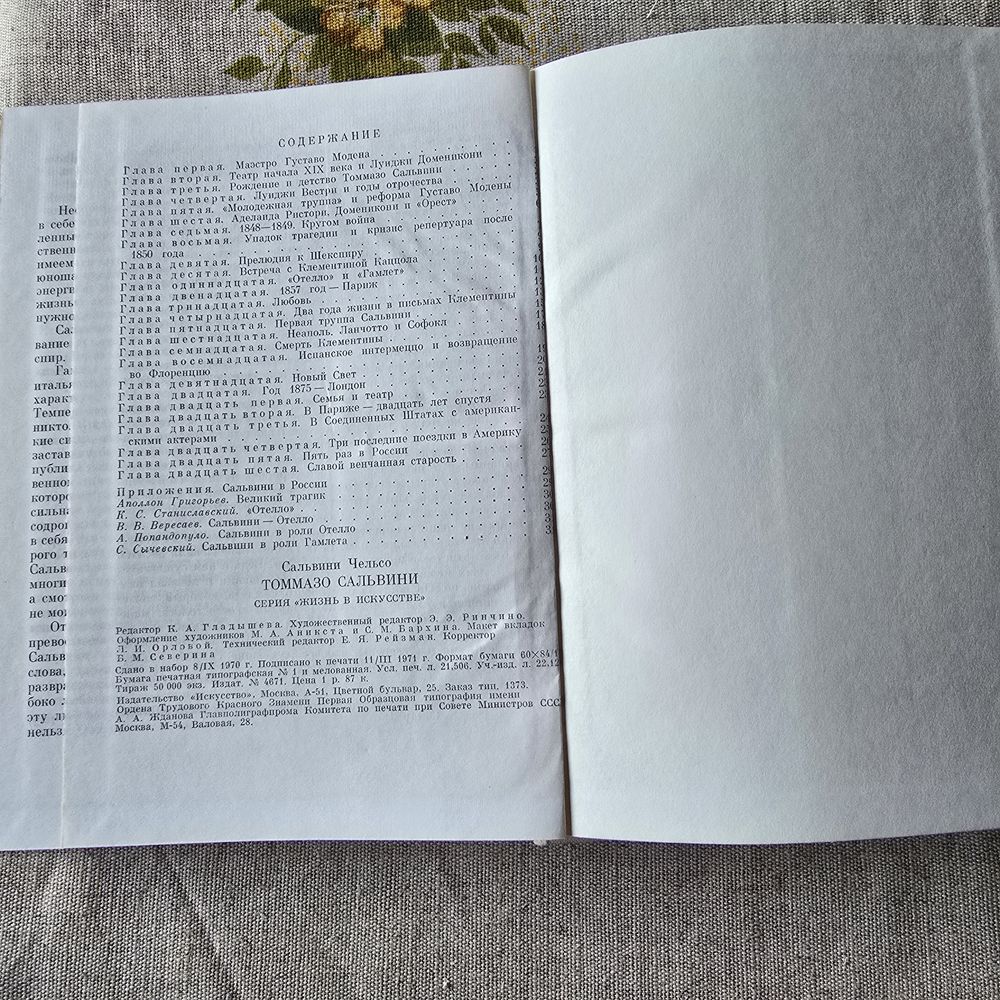 СОДЕРЖАНИЕ
Глава первая. Маэстро Густаво Модена
Глава вторая. Театр начала XIX века и Луиджи Доменикони
Глава третья. Рождение и детство Томмазо Сальвини
Глава четвертая. Луиджи Вестри и годы отрочества
Глава пятая. «Молодежная труппа» и реформа Густаво Модены
Глава шестая. Аделаида Ристори. Доменикони и «Орест»
Глава седьмая. 1848—1849. Кругом война
Глава восьмая. Упадок трагедии и кризис репертуара после
1850 года
Глава девятая. Прелюдия к Шекспиру
Глава десятая. Встреча с Клементиной Каццола
Глава одиннадцатая. «Отелло» и «Гамлет»
Глава двенадцатая. 1857 год — Париж
Глава тринадцатая. Любовь
Глава четырнадцатая. Два года жизни в письмах Клементины
Глава пятнадцатая. Первая труппа Сальвини
Глава шестнадцатая. Неаполь. Ланчотто и Софокл
Глава семнадцатая. Смерть Клементины
Глава восемнадцатая. Испанское интермеццо и возвращение
во Флоренцию
Глава девятнадцатая. Новый Свет
Глава двадцатая. Год 1875 — Лондон
Глава двадцать первая. Семья и театр
Глава двадцать вторая. В Париже — двадцать лет спустя
Глава двадцать третья. В Соединенных Штатах с американ-
скими актерами
Глава двадцать четвертая. Три последние поездки в Америку
Глава двадцать пятая. Пять раз в России
Глава двадцать шестая. Славой венчанная старость
Приложения. Сальвини в России
Аполлон Григорьев. Великий трагик
К. С. Станиславский. «Отелло»
В. В. Вересаев. Сальвини — Отелло
А. Попандопуло. Сальвини в роли Отелло
С. Сычевский. Сальвини в роли Гамлета
Сальвини Чельсо
ТОММАЗО САЛЬВИНИ
СЕРИЯ «ЖИЗНЬ В ИСКУССТВЕ»
Редактор К. А. Гладышева. Художественный редактор Э. Э. Ринчино.
Оформление художников М. А. Аникста и С. М. Бархина. Макет вкладок
Л. И. Орловой. Технический редактор Е. Я. Рейзман. Корректор
Б. М. Северина
Сдано в набор 8/IX 1970 г. Подписано к печати 11/III 1971 г. Формат бумаги 60×84/1
Бумага печатная типографская № 1 и мелованная. Усл. печ. л. 21,506. Уч.-изд. л. 22,12
Тираж 50 000 экз. Издат. № 4671. Цена 1 р. 87 к.
Издательство «Искусство», Москва, А-51, Цветной бульвар, 25. Заказ тип. 1373.
Ордена Трудового Красного Знамени Первая Образцовая типография имени
А. А. Жданова Главполиграфпрома Комитета по печати при Совете Министров СССР
Москва, М-54, Валовая, 28.